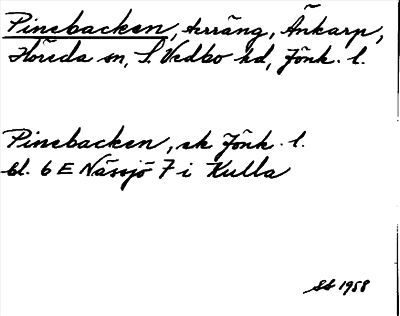 Pinebacken, terräng, Änkarp,
Höreda sn, S. Vedbo hd, Jönk. l.
Pinebacken, ek Jönk. l.
bl. 6 E Nässjö 7 i Kulla
1958